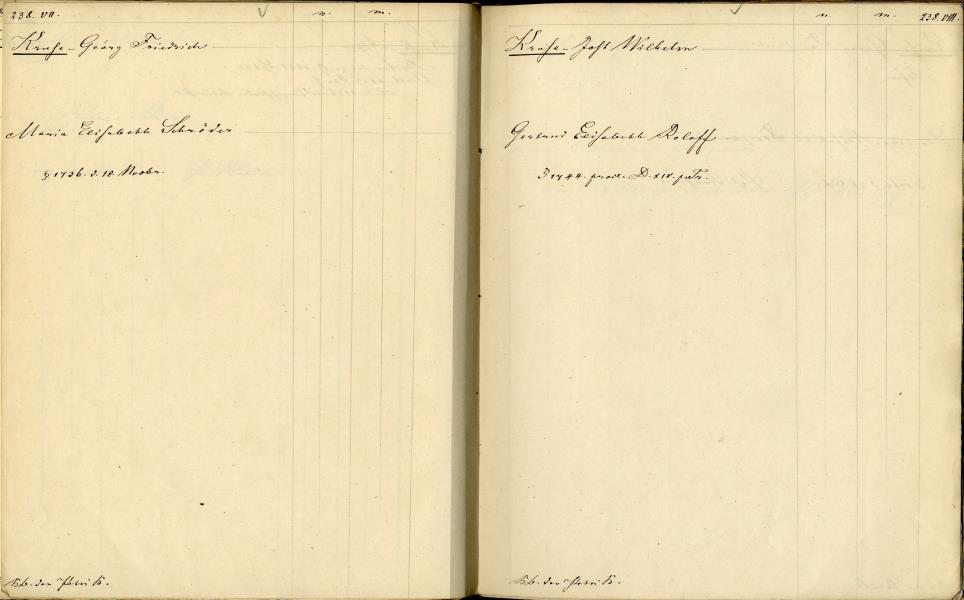 238. VII.
n.
m.
Kruse - Georg Friedrich
Maria Elisabeth Schröder
1736. d. 18. Novbr.
Kb. der Petri K.
n.
m.
238. VIII.
Kruse - Jost Wilhelm
Gertrud Elisabeth Roloff
1744. D. XIV. p. Tr.
Kb. der Petri K.